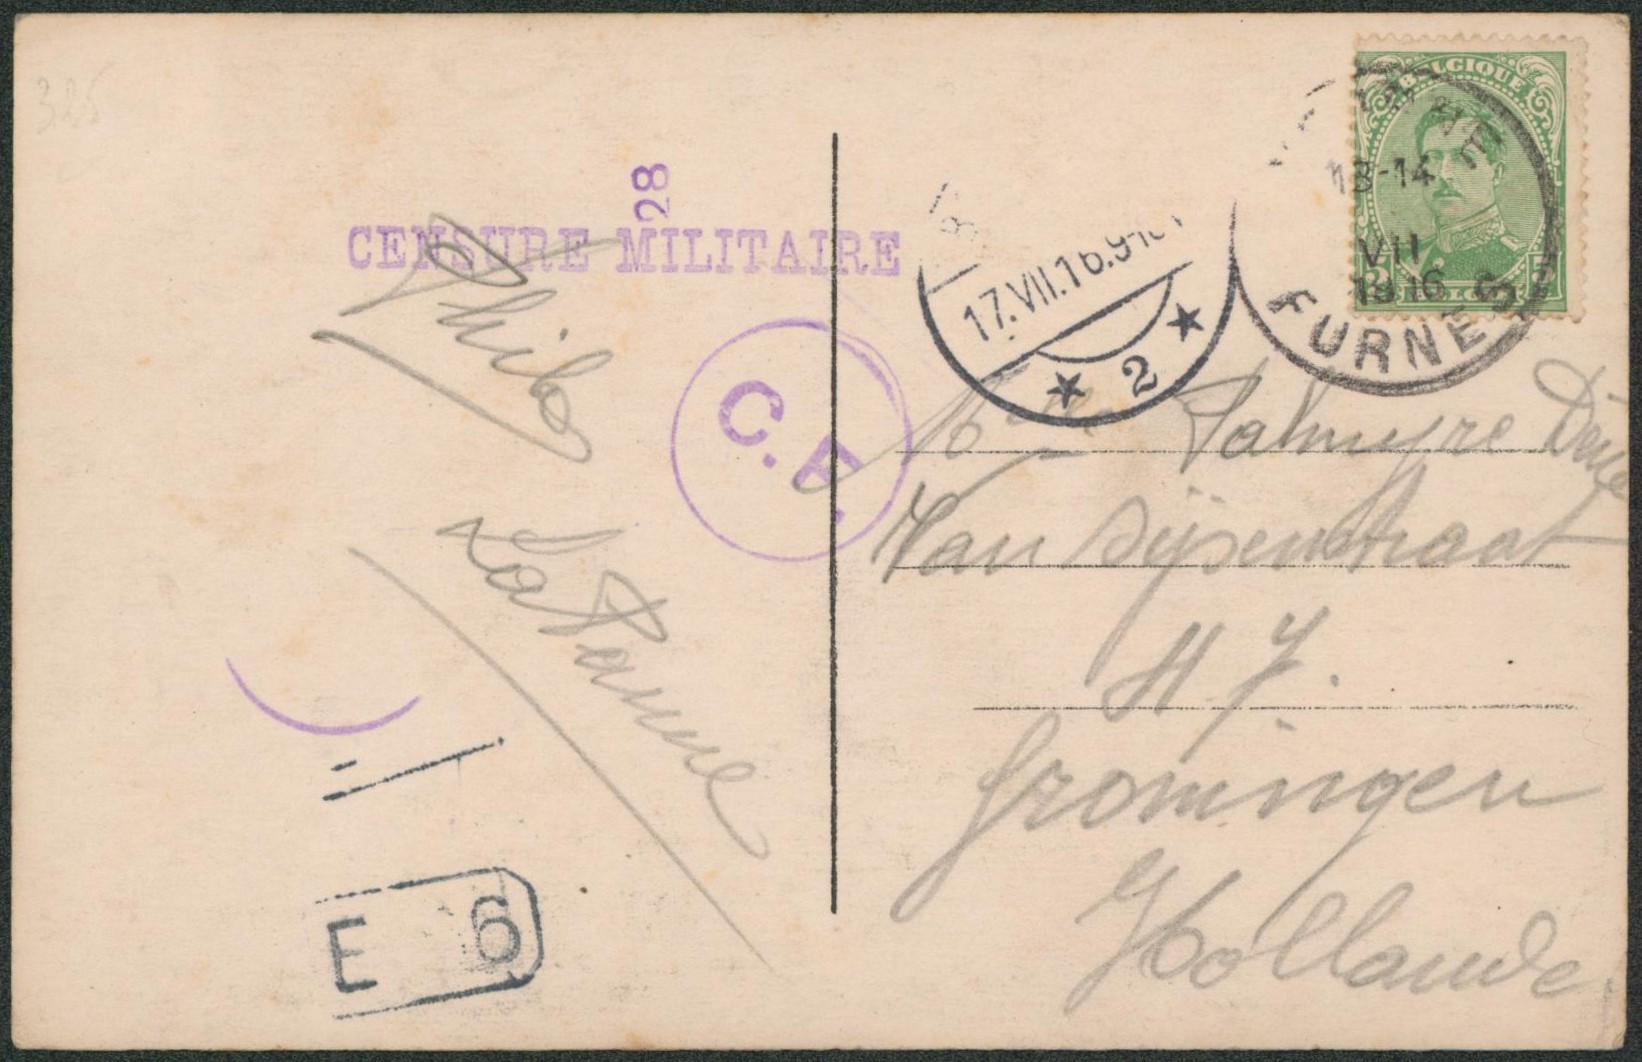 325
28
CENSURE MILITAIRE
Philo
La Panne
C.F.
E 6
17.VII.16.9-10V
2
BELGIQUE
13-14
VII
1916
FURNES
Melle Palmyre
Van Sijsenstraat
Groningen
Hollande